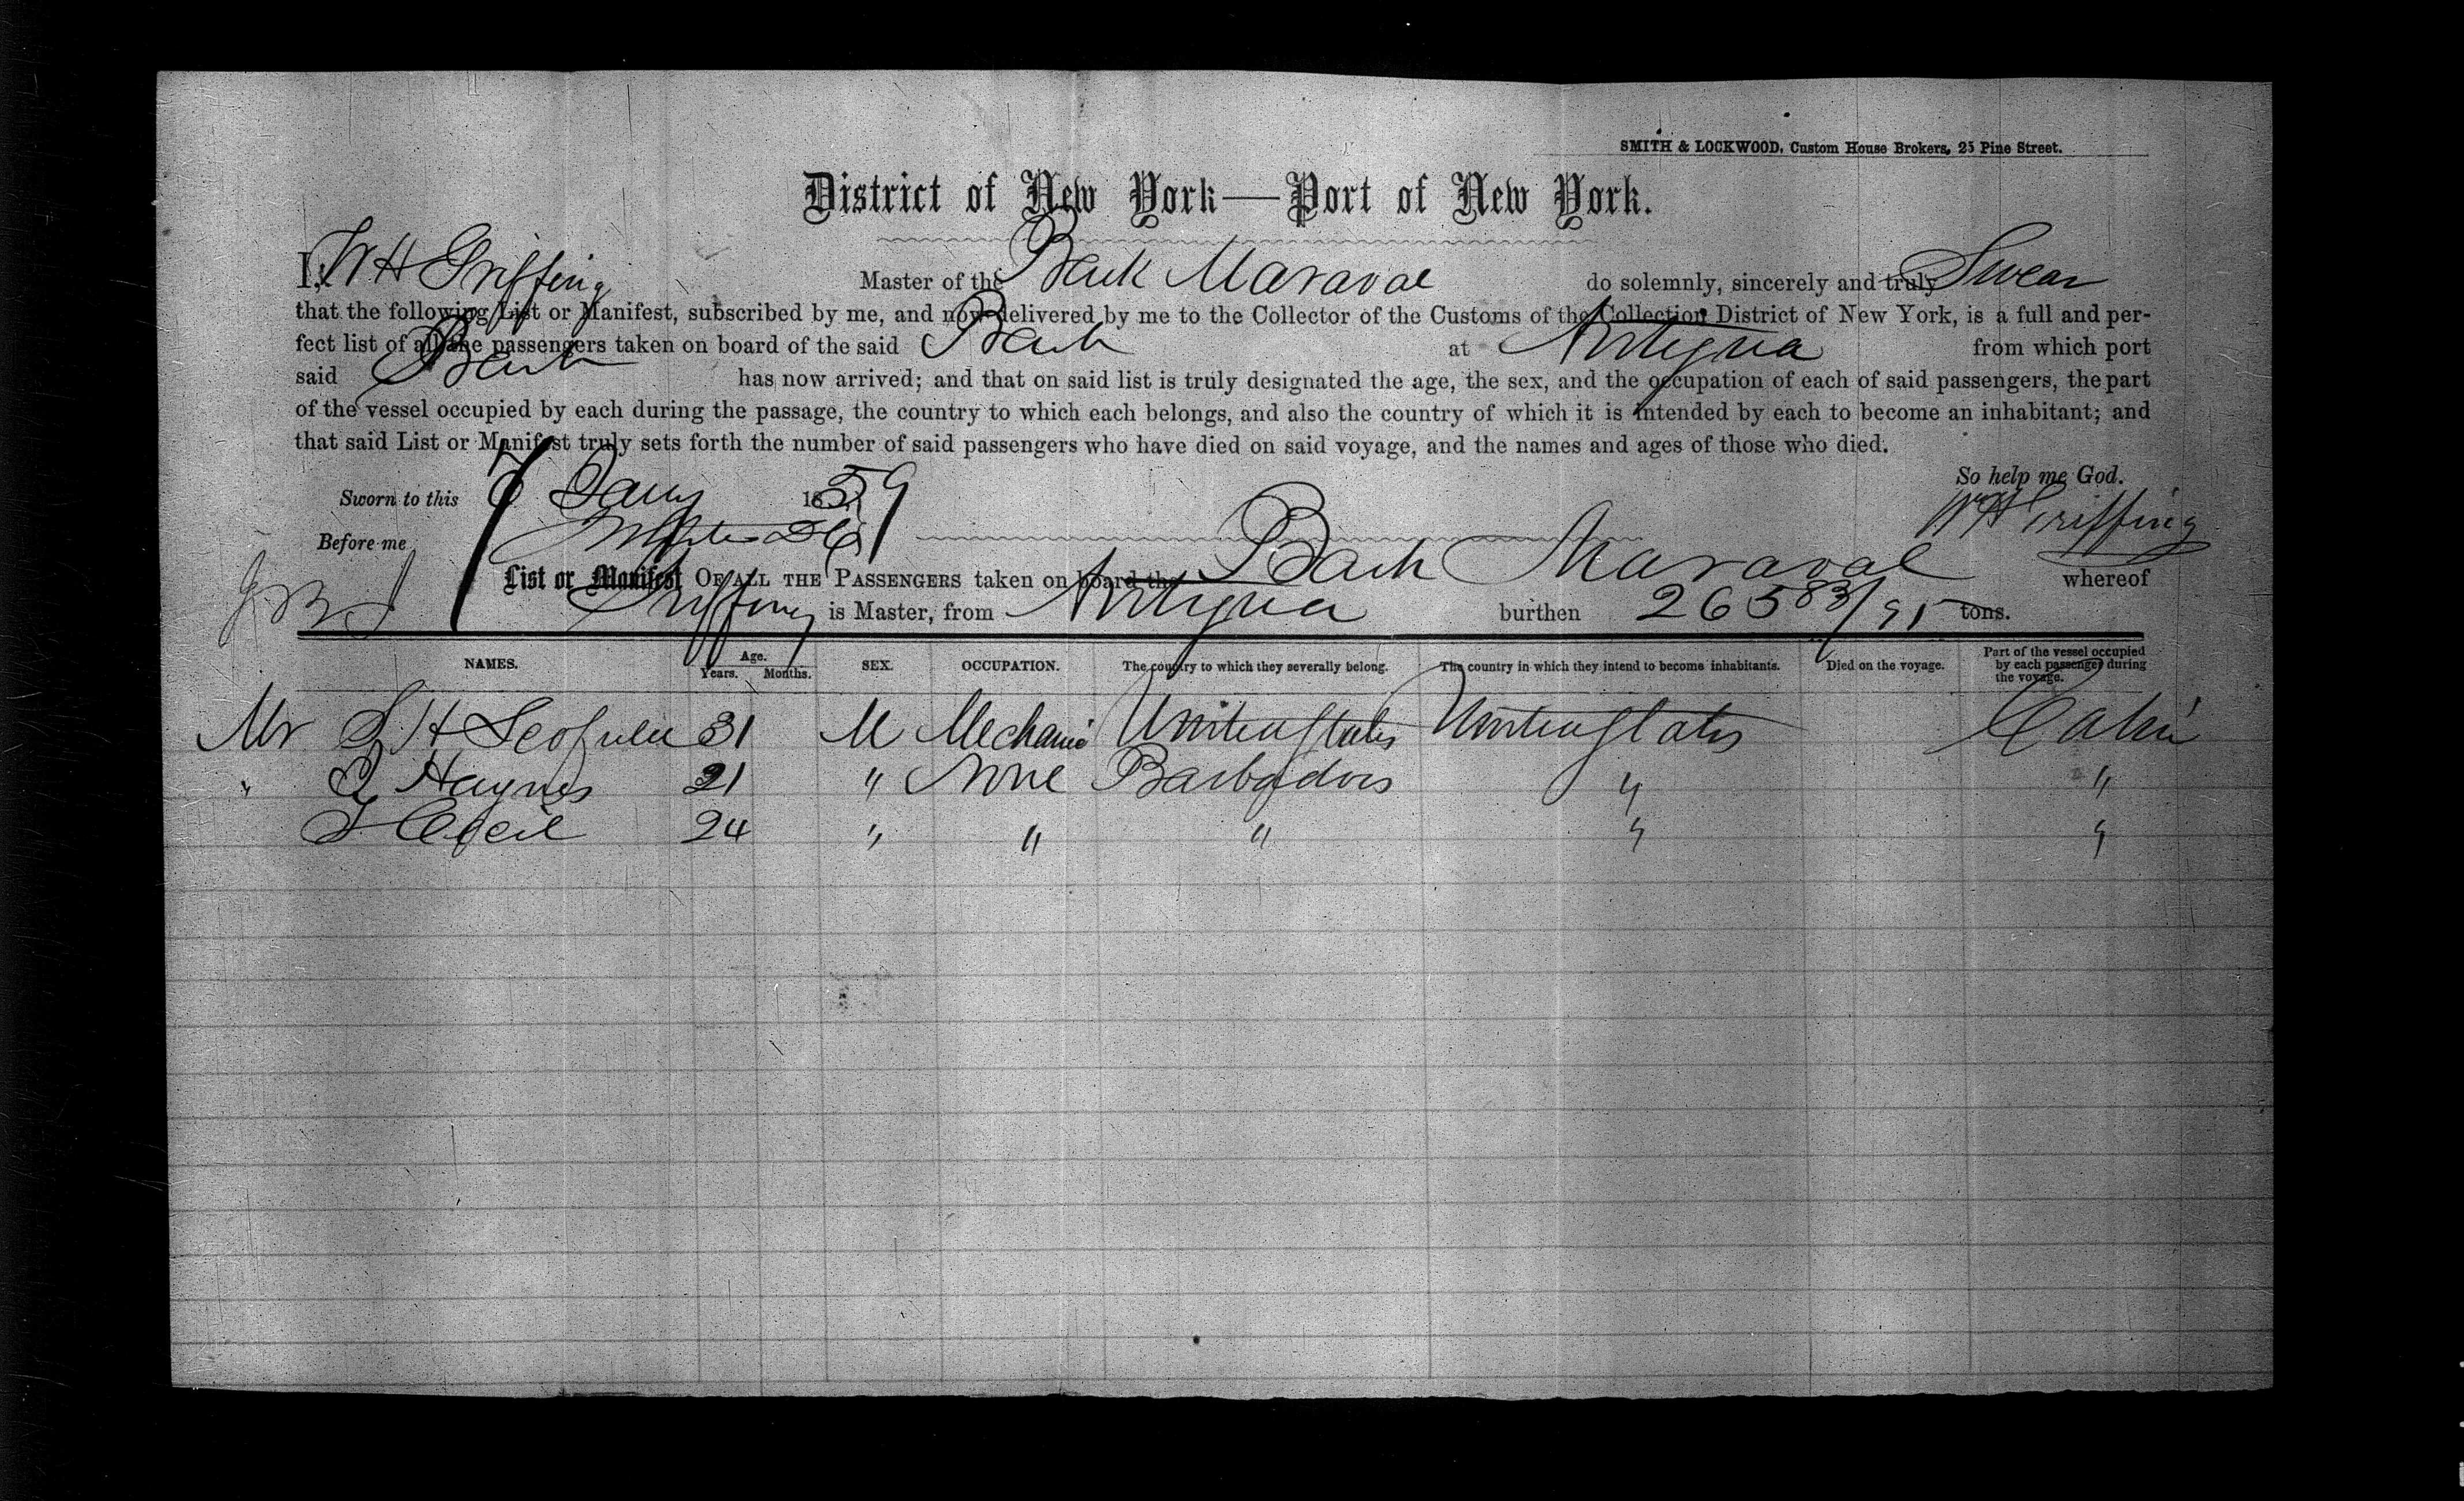 SMITH & LOCKWOOD, Custom House Brokers, 25 Pine Street.
District of New York—Port of New York.
I, W H Griffing Master of the Bark Maraval do solemnly, sincerely and truly Swear
that the following List or Manifest, subscribed by me, and now delivered by me to the Collector of the Customs of the Collection District of New York, is a full and per-
fect list of all the passengers taken on board of the said Bark at Antigua from which port
said Bark has now arrived; and that on said list is truly designated the age, the sex, and the occupation of each of said passengers, the part
of the vessel occupied by each during the passage, the country to which each belongs, and also the country of which it is intended by each to become an inhabitant; and
that said List or Manifest truly sets forth the number of said passengers who have died on said voyage, and the names and ages of those who died.
So help me God.
Sworn to this 7 Jany 1859
W H Griffing
Before me
List or Manifest OF ALL THE PASSENGERS taken on board the Bark Maraval whereof
Griffing is Master, from Antigua burthen 265 83/95 tons.
NAMES. Age. Years. Months. SEX. OCCUPATION. The country to which they severally belong. The country in which they intend to become inhabitants. Died on the voyage. Part of the vessel occupied by each passenger during the voyage.
Mr S H Scofield 31 M Mechanic United States United States Cabin
" Haynes 21 " None Barbadoes " "
Cecil 24 " " " " "